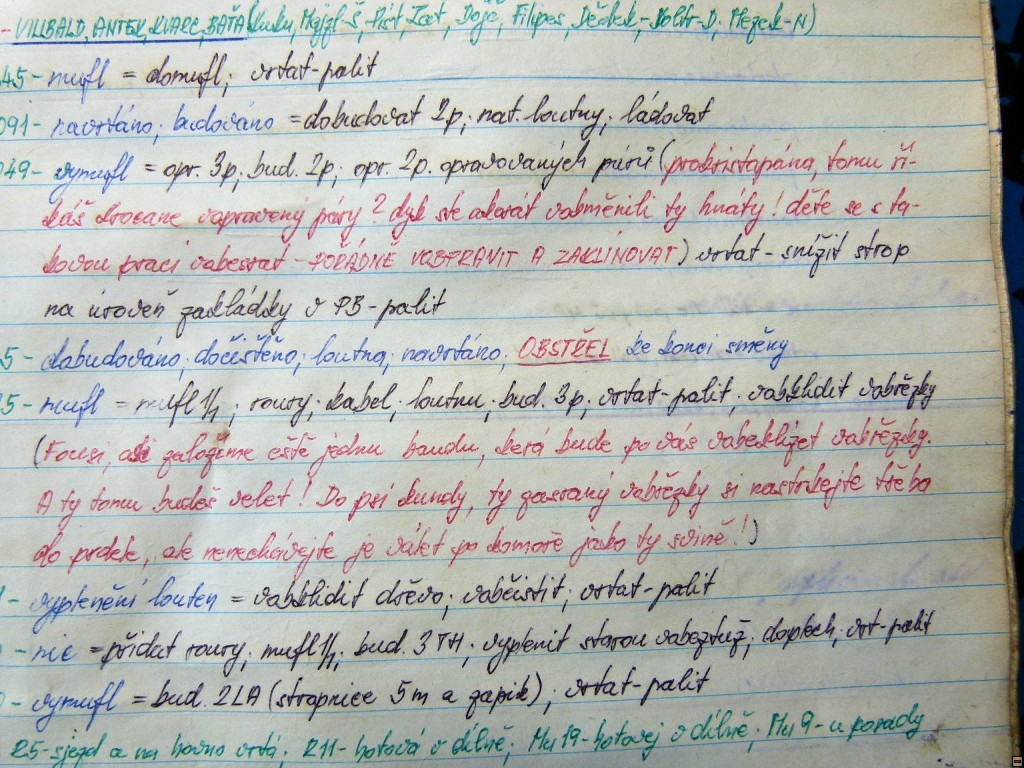 - VILLBALD, ANTEK, KVARC, BAŤA (Kuku, Mgjzl-Š, Pišt, Zet, Dojč, Filipes, Dědek-Voltr-D. Mezek-N)
45- mufl = domufl; vrtat-palit
091- navrtáno; budováno = dobudovat 2p; nat. loutny; ládovat
049- vymufl = opr. 3p; bud. 2p; opr. 2p. opravovaných párů (prokristapána, tomu ří-
káš krocane vopravený páry? dyk ste akorát vobměnili ty hnáty! děte se s ta-
kovou prací vobesrat - POŘÁDNĚ VOBTRANIT A ZAKLÍNOVAT) vrtat-snížit strop
na úroveň zakládky v PB-palit
5- dobudováno; dočištěno; loutna; navrtáno; OBSTŘEL ke konci směny
5- mufl = mufl 1/1; roury; kabel; loutnu; bud. 3p; vrtat-palit; vobklidit vobřezky
(Fousi, asi založíme eště jednu bandu, kerá bude po vás vobeklízet vobřezky.
A ty tomu budeš velet! Do psí kundy, ty zasraný vobřezky si nastrkejte třeba
do prdele, ale nenechávejte je válet po komoře jako ty svině!)
- vyplenění louten = vobklidit dřevo; vobčistit; vrtat-palit
- nic = přidat roury; mufl 1/1; bud. 3 TH; vyplenit starou vobeztuž; doplech; vrt-palit
- vymufl = bud. 2LA (stropnice 5m a zápich); vrtat-palit
R5-sjezd a na hovno vrtá; R11-hotová v dílně; Mu 19-hotovej v dílně; Mu 9-u porady